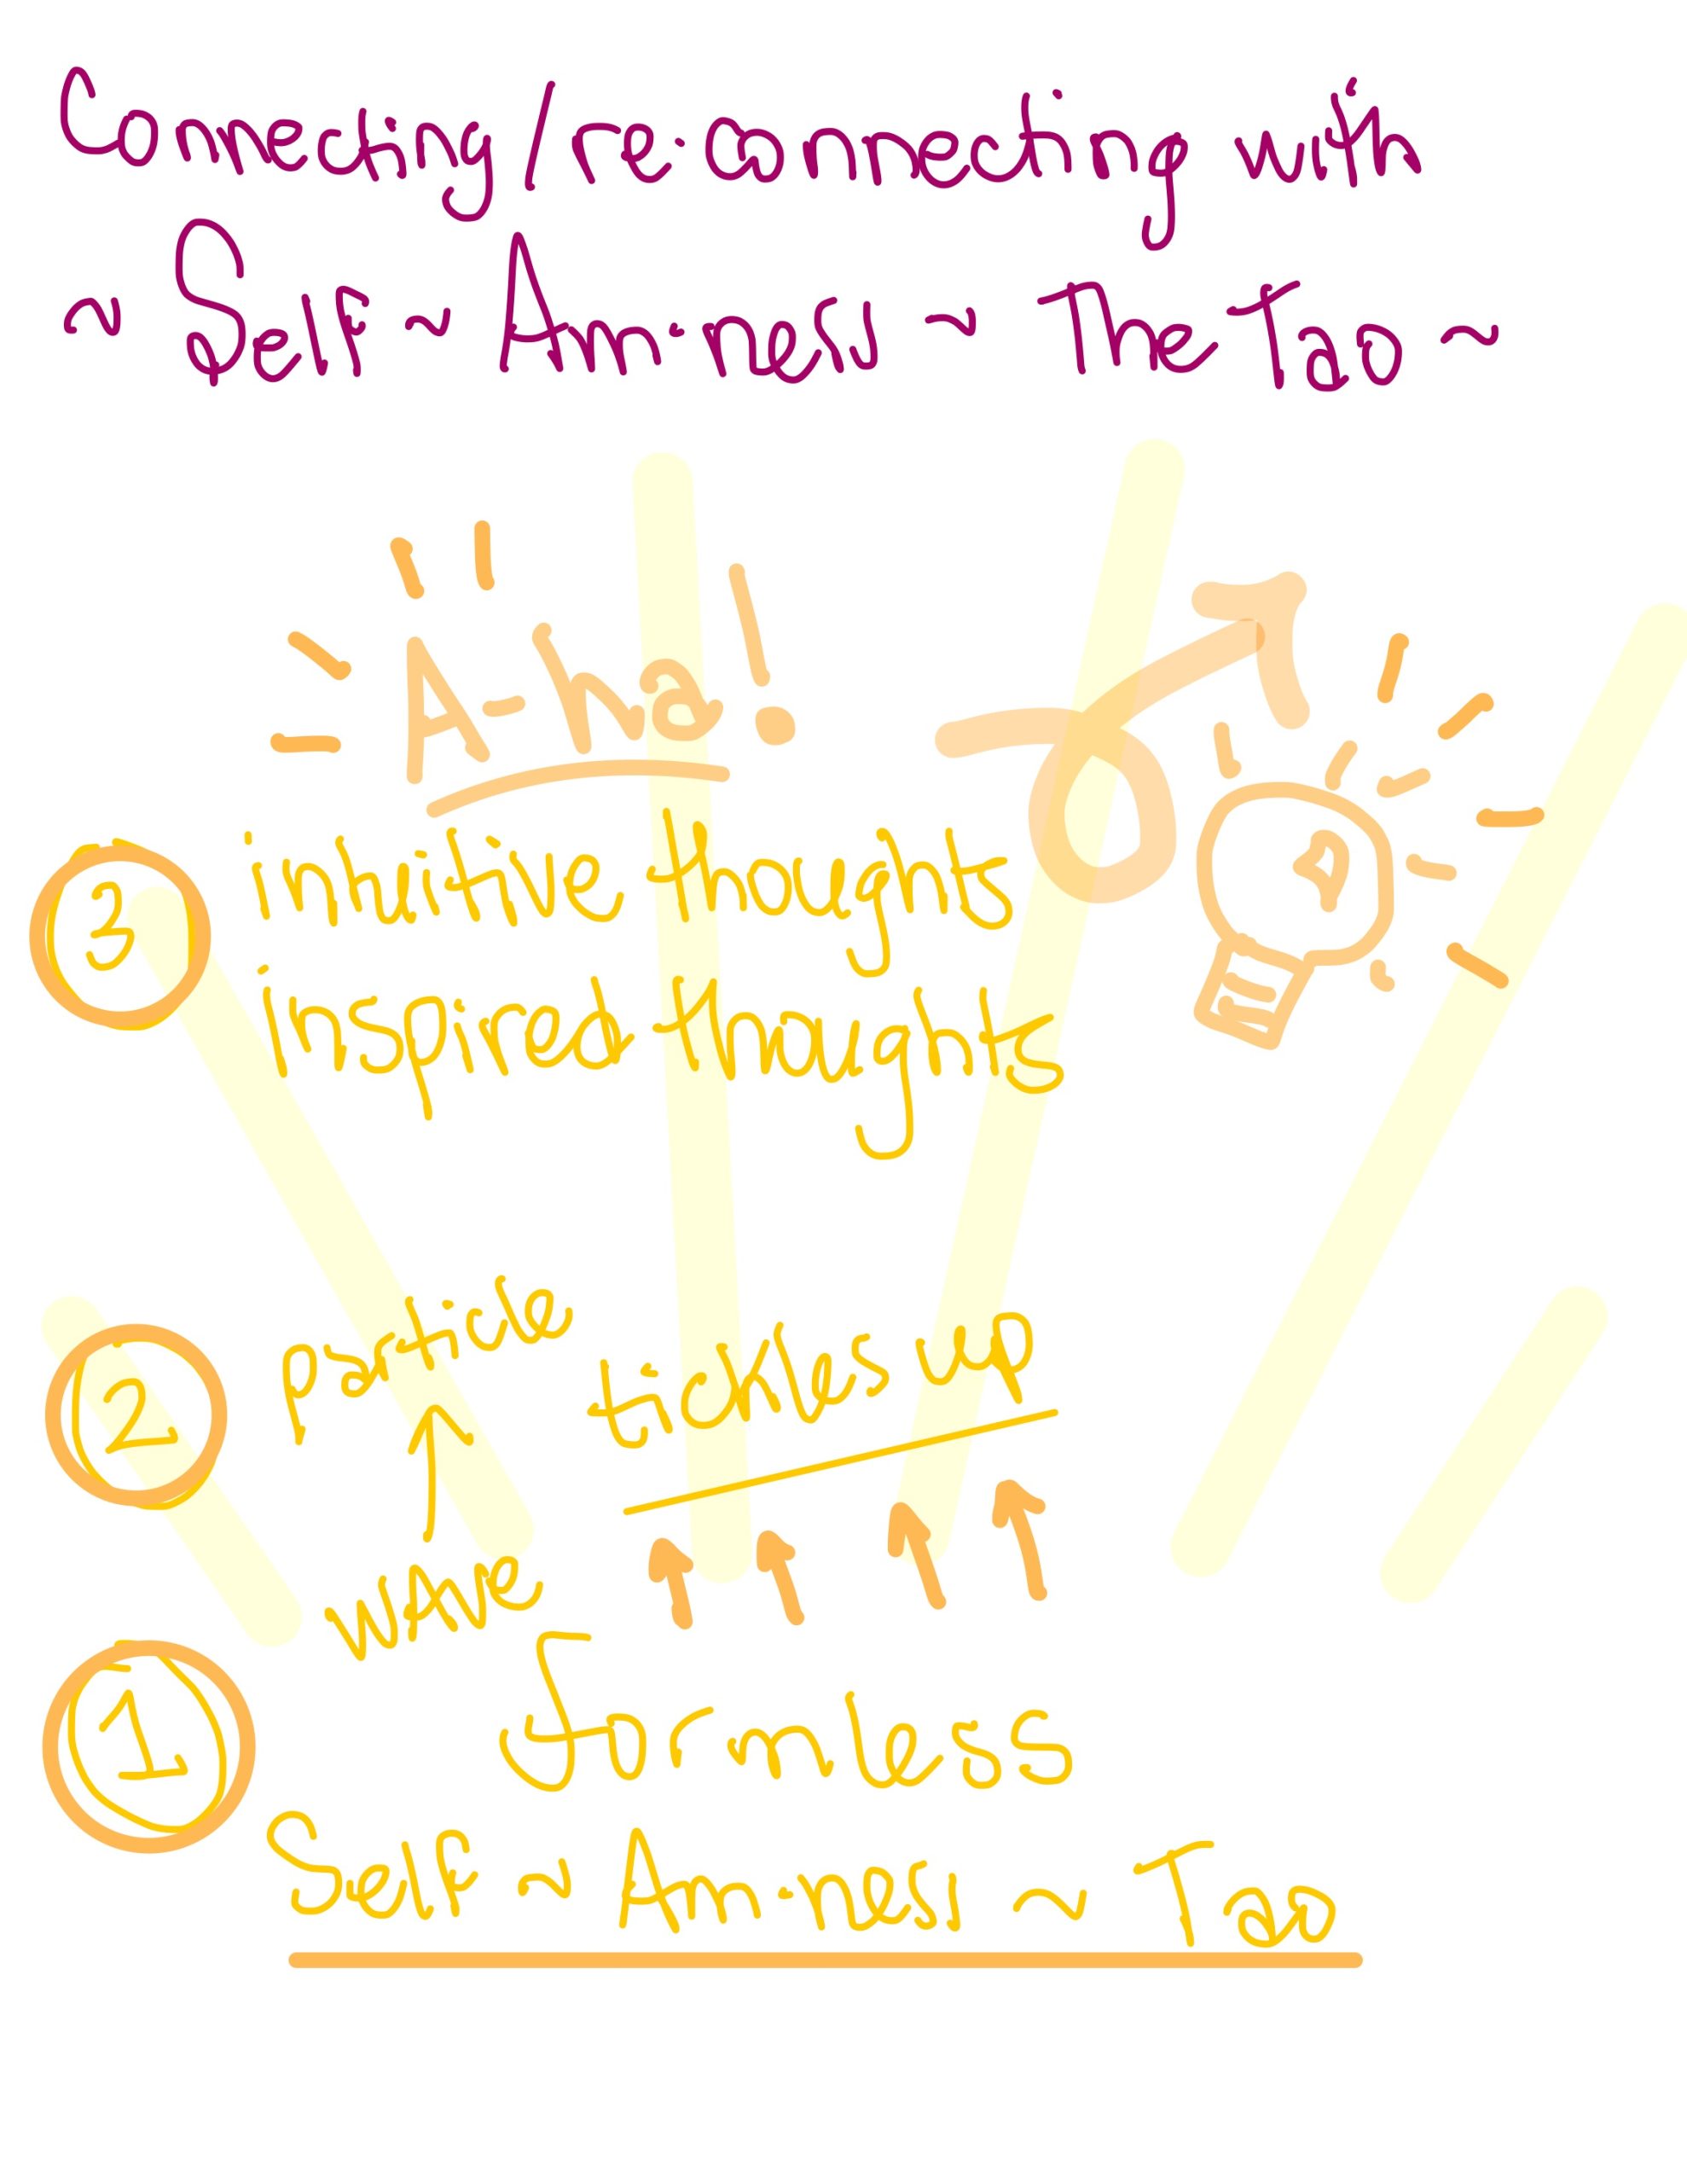 Connecing/re:connecting with
~ Self ~ Am-ness ~ The Tao ~
A-ha!
3 intuitive thoughts
inspired thoughts
2 particle tickles up
wave
1 formless
Self ~ Am-ness ~ Tao